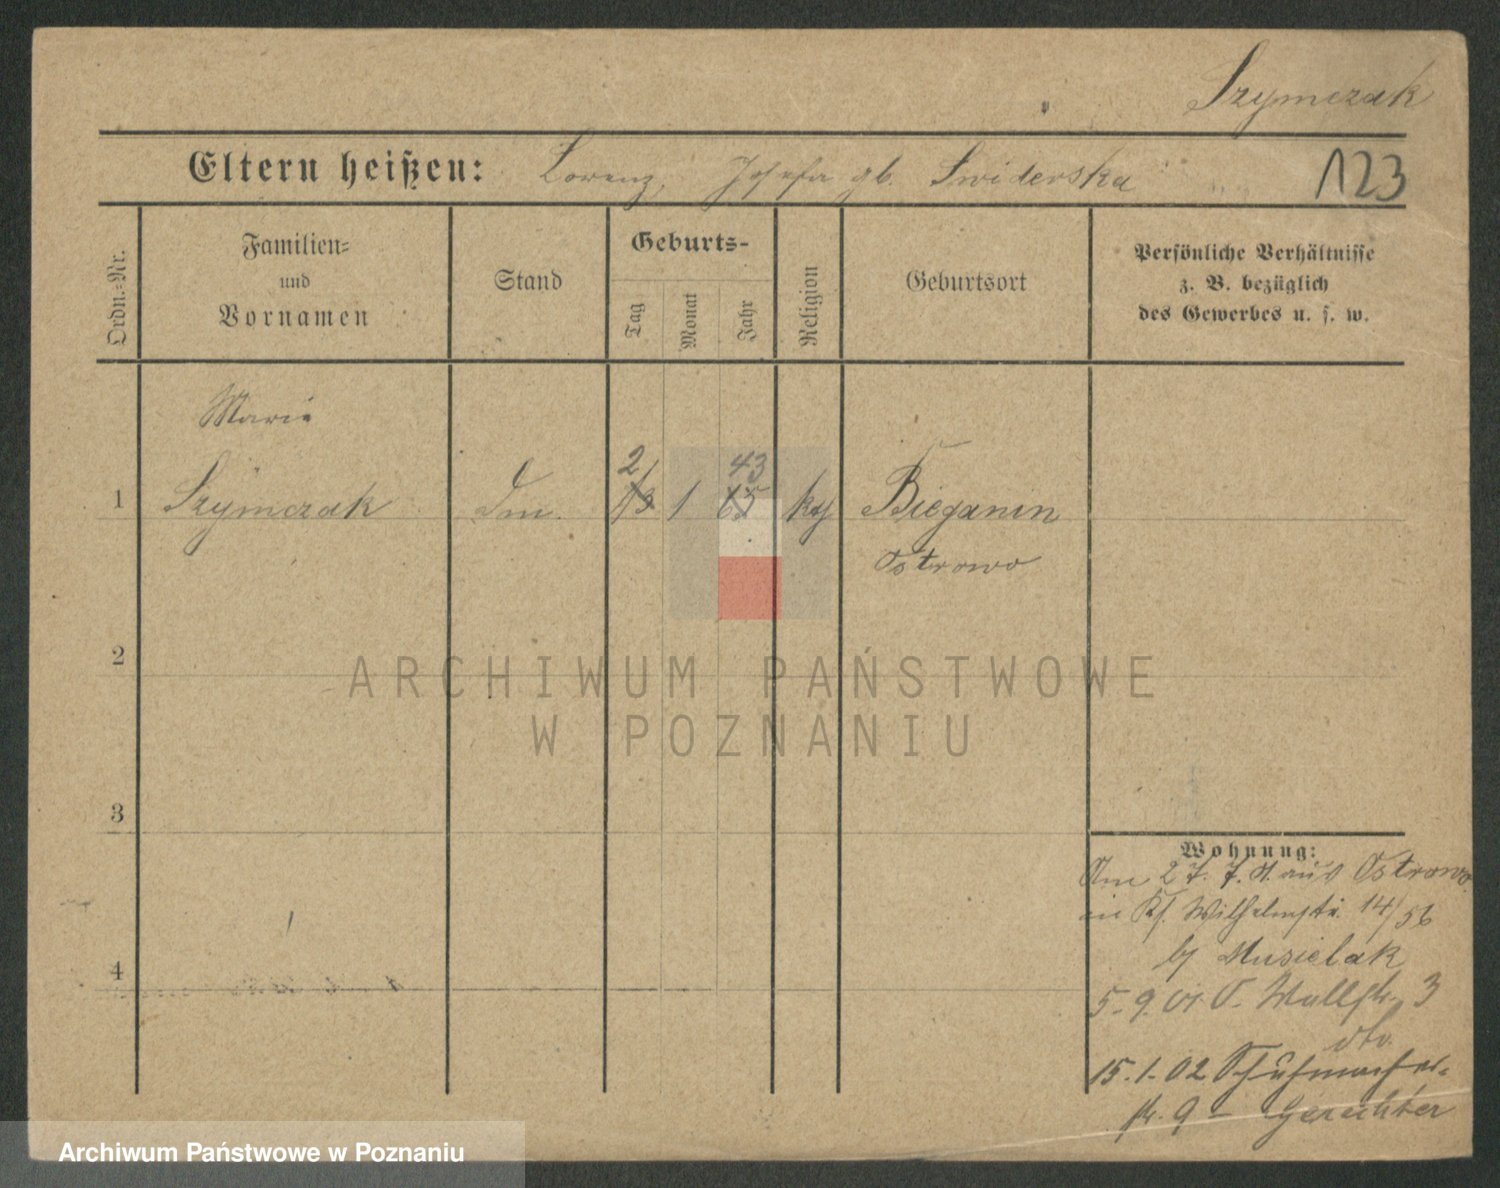 Szymczak
Eltern heißen: Lorenz, Josefa gb. Swiderska
123
Ordn.=Nr.
Familien=
und
Vornamen
Stand
Geburts=
Tag
Monat
Jahr
Religion
Geburtsort
Persönliche Verhältnisse
z. B. bezüglich
des Gewerbes u. s. w.
Marie
2 43
1 Szymczak 13 1 65 Bieganin
Ostrowo
2
ARCHIWUM PAŃSTWOWE
W POZNANIU
3
Wohnung:
Am 27. 7. 01 aus Ostrowo
in Wilhelmstr. 14/56
b/ Musielak
5. 9. 01 Wallstr. 3
dto.
15. 1. 02 Schuhmacher-
str. 9 –
4
Archiwum Państwowe w Poznaniu